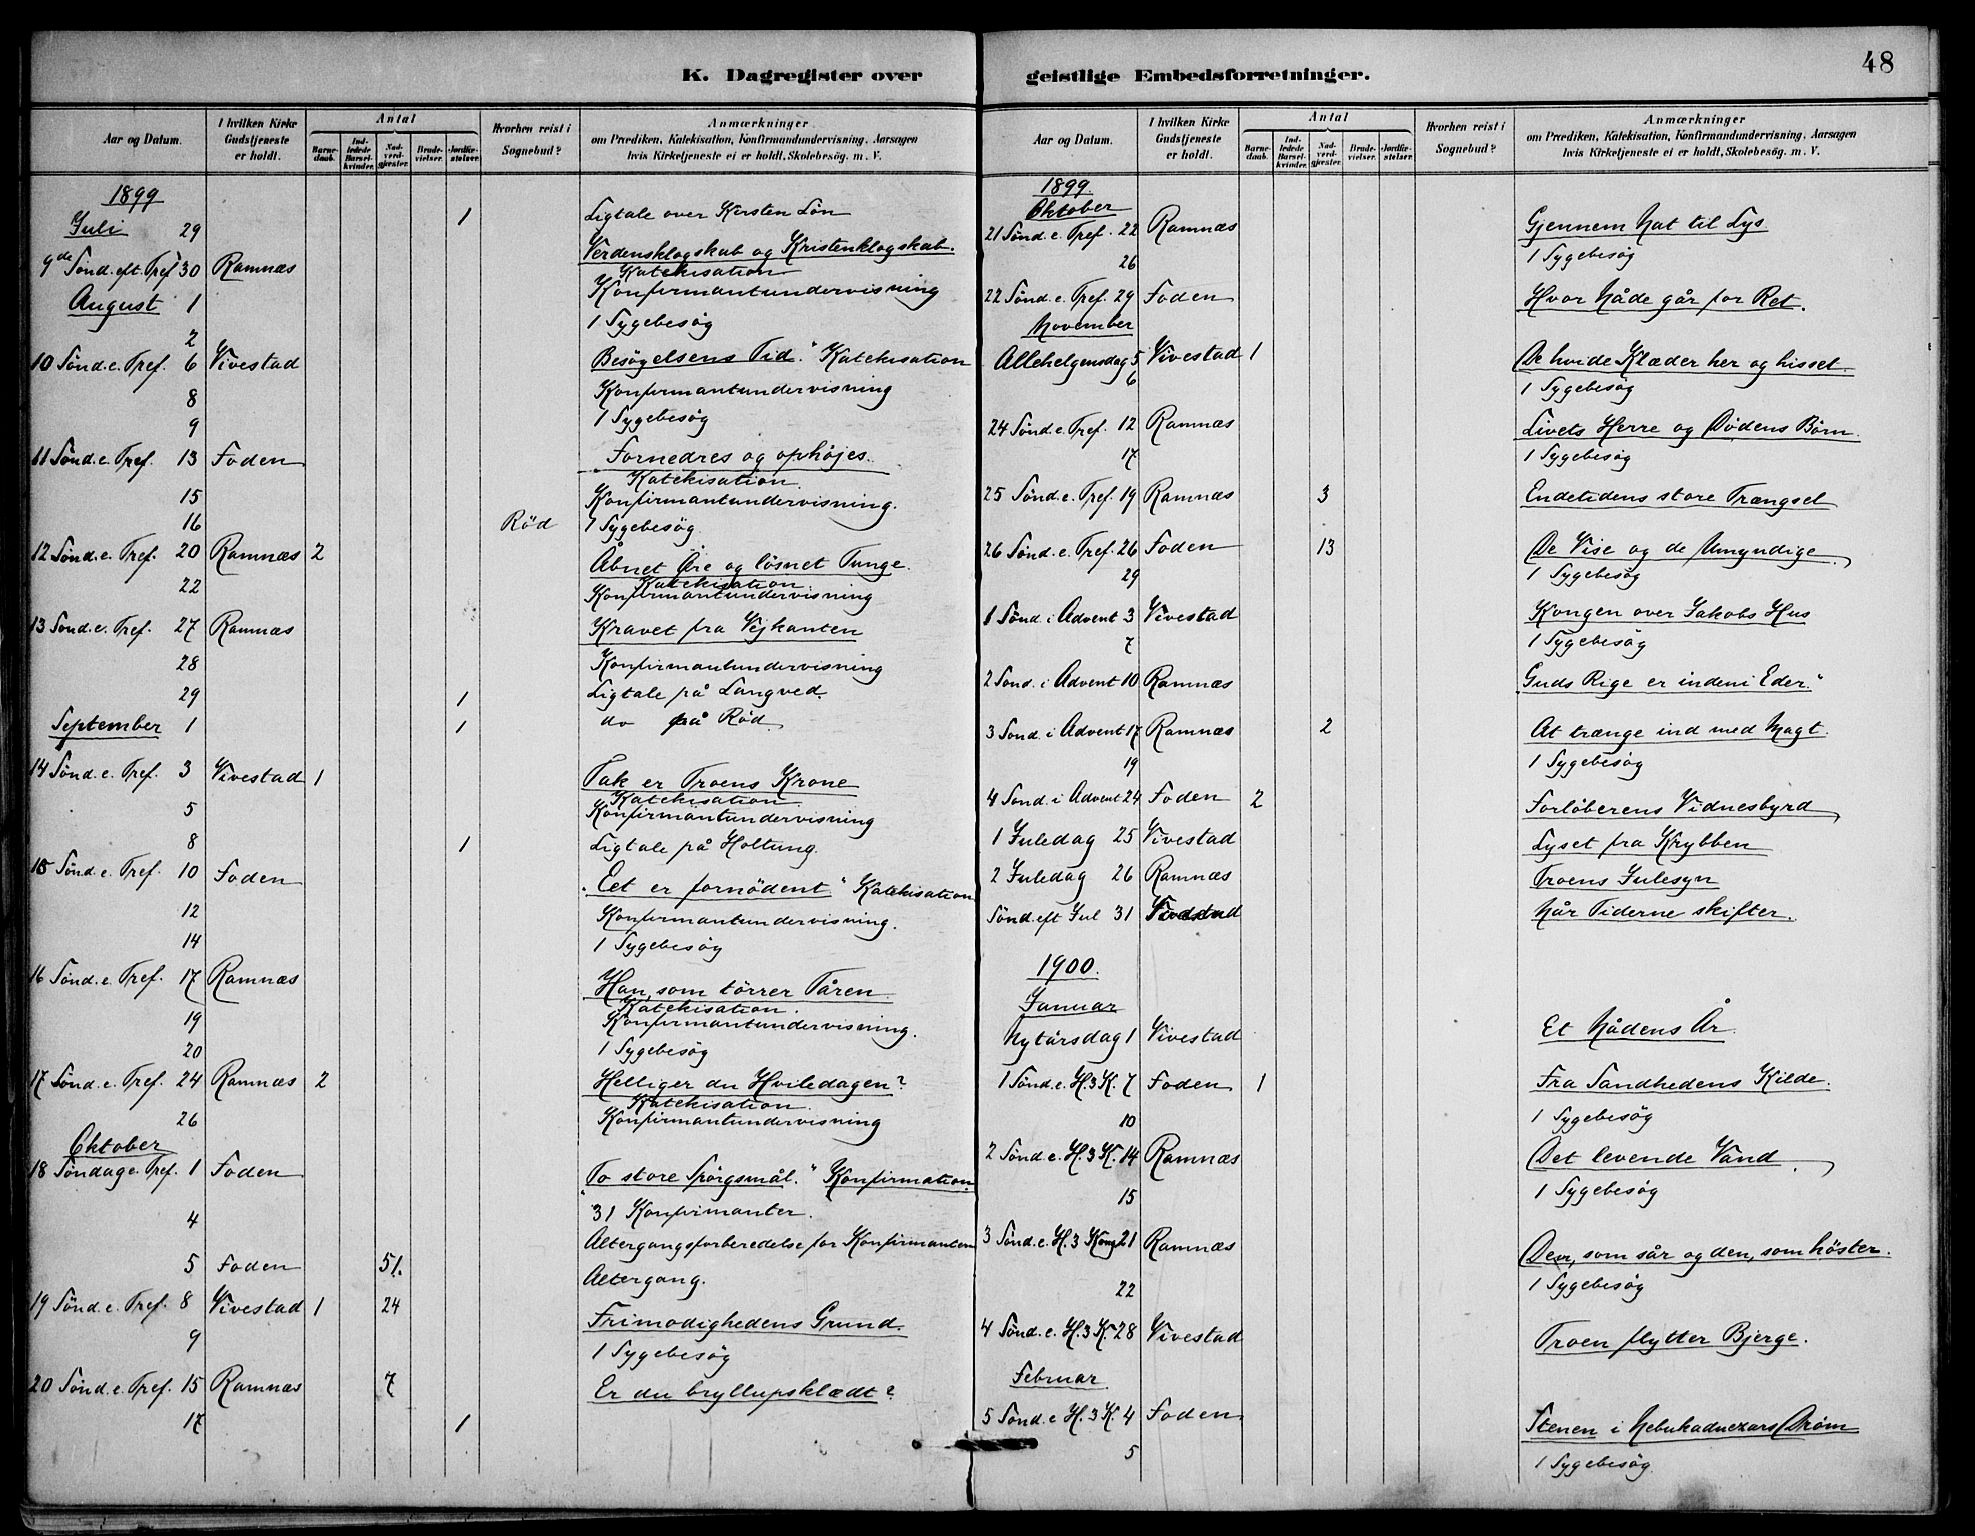 K. Dagregister over
Aar og Datum.
I hvilken Kirke Gudstjeneste er holdt.
Antal
Barnedaab.
Indledede Barselkvinder.
Nadverdgjester.
Brudevielser.
Jordfæstelser.
Hvorhen reist i Sognebud?
Anmærkninger
om Prædiken, Katekisation, Konfirmandundervisning, Aarsagen
hvis Kirketjeneste ei er holdt, Skolebesøg. m. V.
1899
Juli 29 1 Ligtale over Kirsten Lön
Verdensklogskab og Kristenklogskab.
9de Sönd. eft. Tref 30 Ramnæs Katekisation
August 1 Konfirmantundervisning
2 1 Sygebesög
10 Sönd. e. Tref. 6 Vivestad Besögelsens Tid." Katekisation
8 Konfirmantundervisning
9 1 Sygebesög
11 Sönd. e. Tref. 13 Foden Fornedres og ophöjes.
Katekisation.
15 Konfirmantundervisning.
16 Röd 1 Sygebesög
12 Sönd. e. Tref. 20 Ramnæs 2 Åbnet Öre og lösnet Tunge.
Katekisation.
22 Konfirmantundervisning
13 Sönd. e. Tref. 27 Ramnæs Kravet fra Vejkanten
28 Konfirmantundervisning
29 1 Ligtale på Langved.
September 1 1 do på Röd
14 Sönd. e. Tref. 3 Vivestad 1 Tak er Troens Krone
Katekisation
5 Konfirmantundervisning
8 1 Ligtale på Holtung.
15 Sönd. e. Tref. 10 Foden "Eet er fornödent" Katekisation
12 Konfirmantundervisning.
14 1 Sygebesög
16 Sönd. e. Tref. 17 Ramnæs Han, som törrer Tåren.
Katekisation.
19 Konfirmantundervisning.
20 1 Sygebesög
17 Sönd. e. Tref. 24 Ramnæs 2 Helliger du Hviledagen?
Katekisation.
26 Konfirmantundervisning
Oktober
18 Söndag e. Tref. 1 Foden "To store Spörgsmål." Konfirmation.
31 Konfirmanter.
4 Altergangsforberedelse for Konfirmanten
5 Foden 51. Altergang.
19 Sönd. e. Tref. 8 Vivestad 1 24 Frimodighedens Grund.
9 1 Sygebesög
20 Sönd. e. Tref. 15 Ramnæs 7 Er du bryllupsklædt?
17 1
geistlige Embedsforretninger.
48
Aar og Datum.
I hvilken Kirke Gudstjeneste er holdt.
Antal
Barnedaab.
Indledede Barselkvinder.
Nadverdgjester.
Brudevielser.
Jordfæstelser.
Hvorhen reist i Sognebud?
Anmærkninger
om Prædiken, Katekisation, Konfirmandundervisning, Aarsagen
hvis Kirketjeneste ei er holdt, Skolebesøg. m. V.
1899.
Oktober
21 Sönd. e. Tref. 22 Ramnæs Gjennem Nat til Lys
26 1 Sygebesög
22 Sönd. e. Tref. 29 Foden Hvor Nåde går for Ret.
November
Allehelgensdag 5 Vivestad 1 De hvide Klæder her og hisset.
6 1 Sygebesög
24 Sönd. e. Tref. 12 Ramnæs Livets Herre og Dödens Börn.
17 1 Sygebesög
25 Sönd. e. Tref. 19 Ramnæs 3 Endetidens store Trængsel
26 Sönd. e. Tref. 26 Foden 13 De Vise og de Umyndige
29 1 Sygebesög
1 Sönd. i Advent 3 Vivestad Kongen over Jakobs Hus
7 1 Sygebesög
2 Sönd. i Advent 10 Ramnæs "Guds Rige er indeni Eder."
3 Sönd. i Advent 17 Ramnæs 2 At trænge ind med Magt.
19 1 Sygebesög
4 Sönd. i Advent 24 Foden 2 Forlöberens Vidnesbyrd
1 Juledag 25 Vivestad Lyset fra Krybben
2 Juledag 26 Ramnæs Troens Julesyn
Sönd. eft Jul 31 Vivestad Når Tiderne skifter.
1900.
Januar
Nytårsdag 1 Vivestad Et Nådens År.
1 Sönd. e. H. 3 K. 7 Foden 1 Fra Sandhedens Kilde.
10 1 Sygebesög
2 Sönd. e. H. 3 K. 14 Ramnæs Det levende Vand.
15 1 Sygebesög
3 Sönd. e. H. 3 Kong. 21 Ramnæs Den, som sår og den, som höster.
22 1 Sygebesög
4 Sönd. e. H. 3 K. 28 Vivestad Troen flytter Bjerge.
Februar
5 Sönd. e H. 3 K. 4 Foden Stenen i Nebukadnezars Dröm
5 1 Sygebesög.